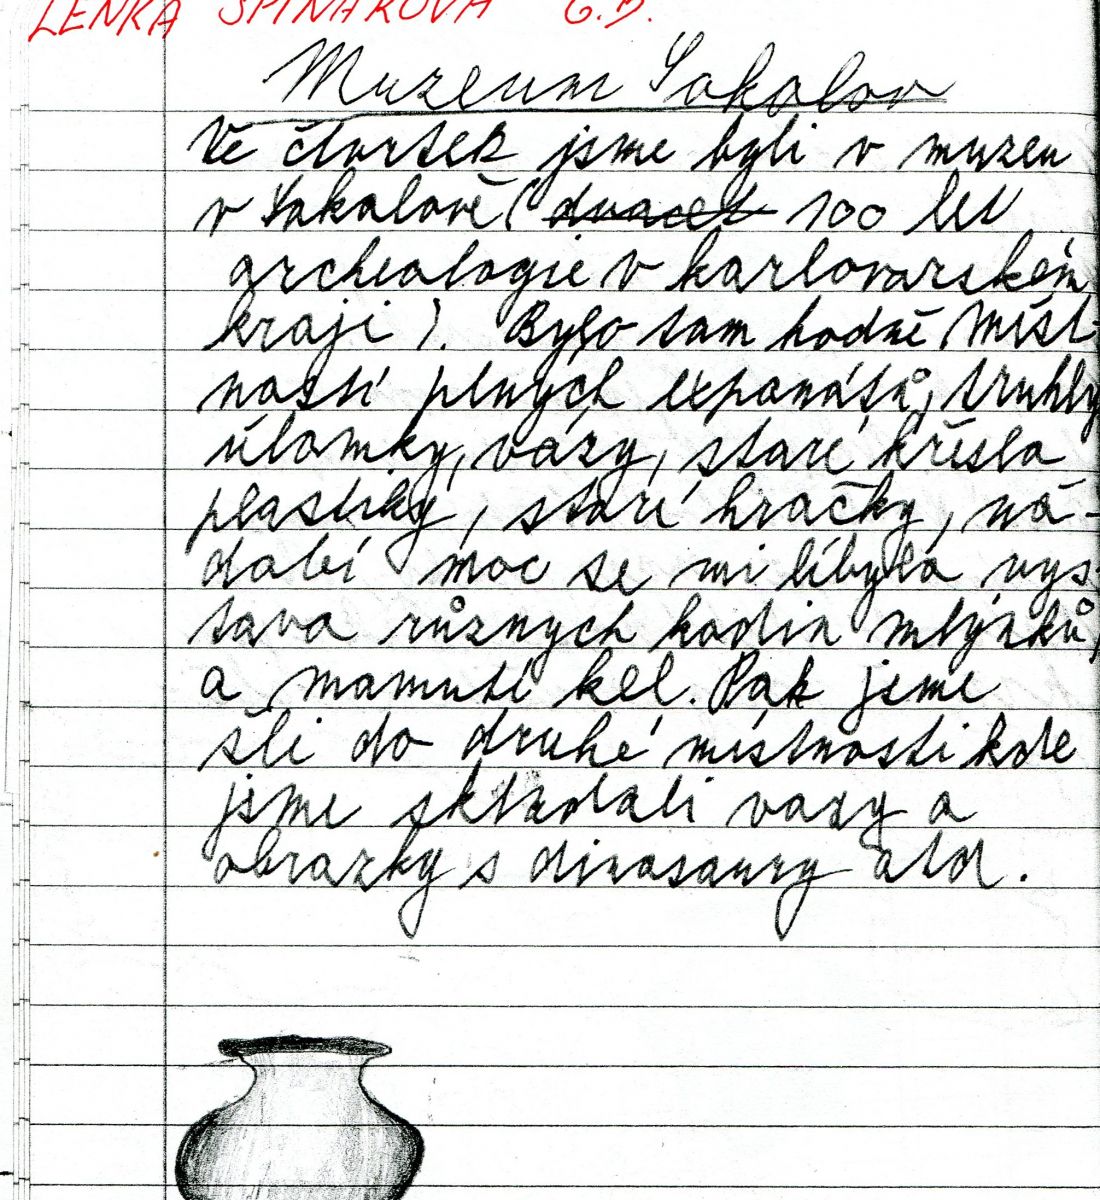 LENKA ŠPINAROVÁ 6.B.
Muzeum Sokolov
Ve čtvrtek jsme byli v muzeu
v Sokolově ( dvacet 100 let
archeologie v karlovarském
kraji ). Bylo tam hodně míst-
ností plných exponátů, truhly
úlomky, vázy, staré křesla
plastiky, staré hračky, ná-
dobí moc se mi líbyla vys-
tava různych hodin mlýnků,
a mamutí kel. Pak jsme
šli do druhé místnosti kde
jsme skládali vazy a
obrazky s dinosaury atd.